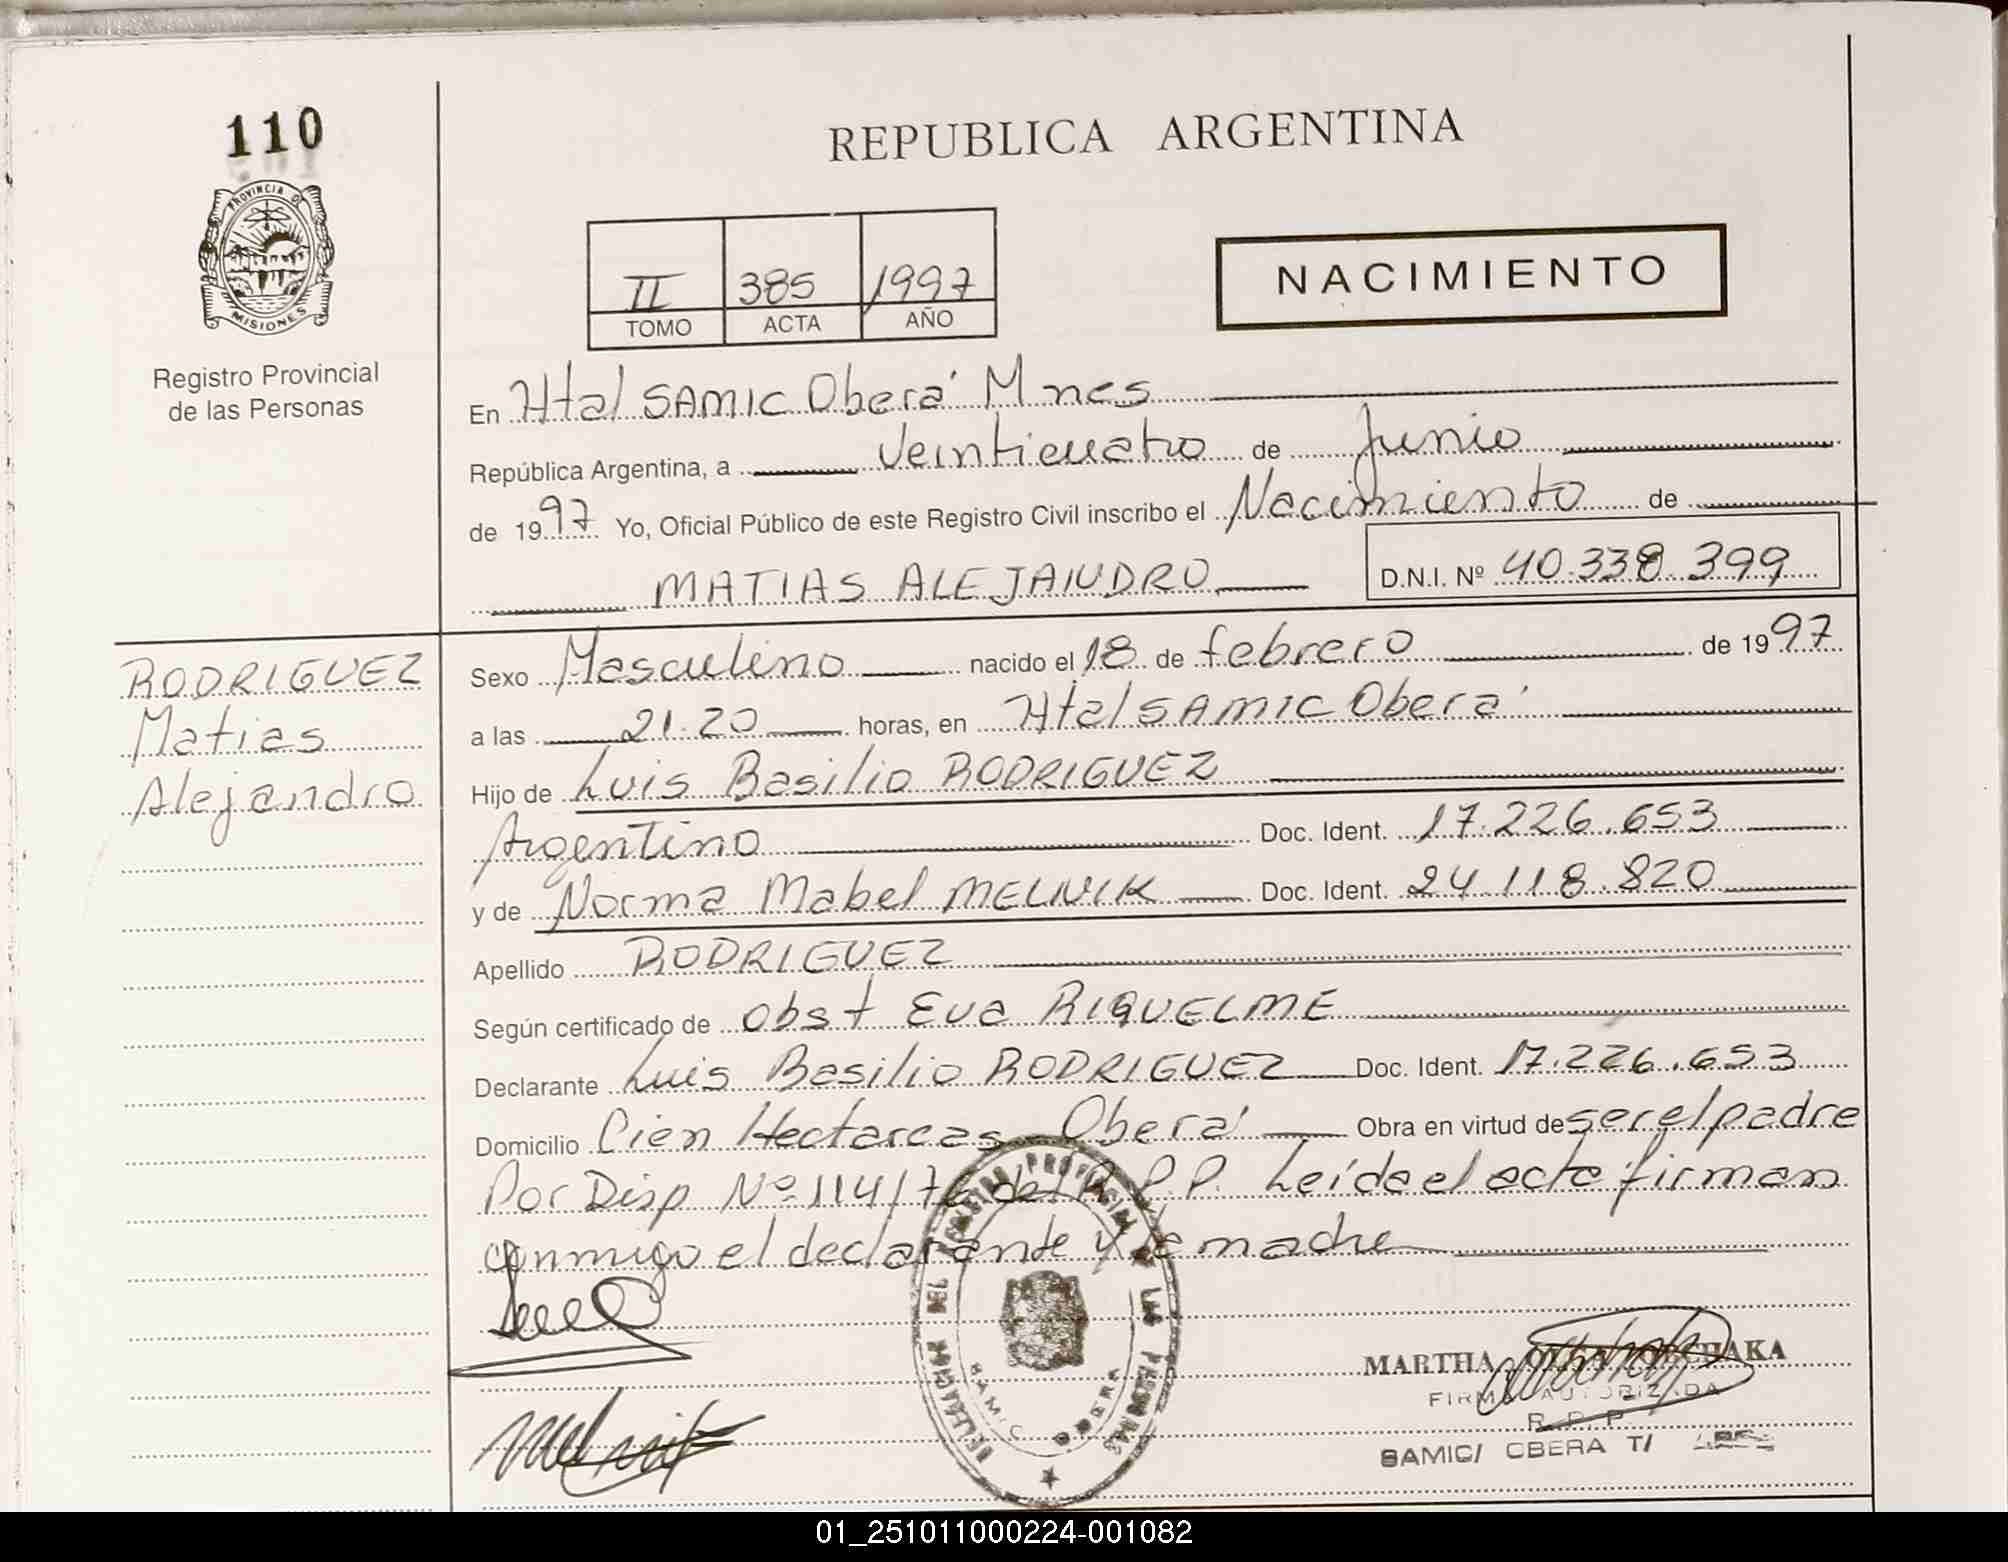 110
PROVINCIA DE
MISIONES
Registro Provincial
de las Personas
REPUBLICA ARGENTINA
II 385 1997
TOMO ACTA AÑO
NACIMIENTO
En Htal SAMIC Oberá Mnes
República Argentina, a veinticuatro de Junio
de 1997 Yo, Oficial Público de este Registro Civil inscribo el Nacimiento de
MATIAS ALEJANDRO D.N.I. Nº 40.338.399
RODRIGUEZ
Matias
Alejandro
Sexo Masculino nacido el 18 de febrero de 1997
a las 21.20 horas, en Htal SAMIC Oberá
Hijo de Luis Basilio RODRIGUEZ
Argentino Doc. Ident. 17.226.653
y de Norma Mabel MELNIK Doc. Ident. 24.118.820
Apellido RODRIGUEZ
Según certificado de Obst Eva RIQUELME
Declarante Luis Basilio RODRIGUEZ Doc. Ident. 17.226.653
Domicilio Cien Hectareas Oberá Obra en virtud de ser el padre
Por Disp Nº 114/76 del R.P.P. Leída el acta firman
conmigo el declarante y la madre
DELEGACION DEL REGISTRO PROVINCIAL DE LAS PERSONAS
SAMIC OBERA
MARTHA
FIRMA AUTORIZADA
R. P. P.
SAMIC/ OBERA T/
01_251011000224-001082